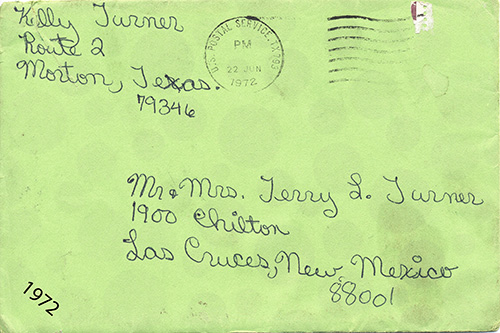 Kelly Turner
Route 2
Morton, Texas.
79346
U.S. POSTAL SERVICE, TX 793
PM
22 JUN
1972
Mr & Mrs. Terry L. Turner
1900 Chilton
Las Cruces, New Mexico
88001
1972